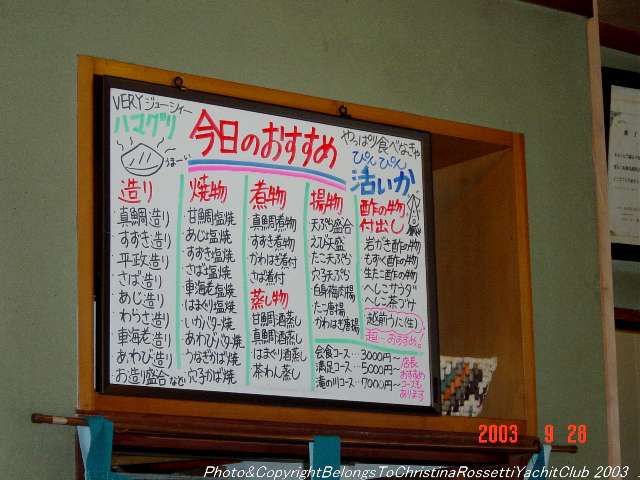 VERY ジューシィー
ハマグリ
うまーい
今日のおすすめ
やっぱり食べなきゃ
ぴんぴん
活いか
造り
真鯛造り
すずき造り
平政造り
さば造り
あじ造り
わらさ造り
車海老造り
あわび造り
お造り盛合など
焼物
甘鯛塩焼
あじ塩焼
すずき塩焼
さば塩焼
車海老塩焼
はまぐり塩焼
いかバター焼
あわびバター焼
うなぎかば焼
穴子かば焼
煮物
真鯛煮物
すずき煮物
かわはぎ煮付
さば煮付
蒸し物
甘鯛酒蒸し
真鯛酒蒸し
はまぐり酒蒸し
茶わん蒸し
揚物
天ぷら盛合
えび天盛
たこ天ぷら
穴子天ぷら
白身梅肉揚
たこ唐揚
かわはぎ唐揚
酢の物
付出し
岩がき酢の物
もずく酢の物
生たこ酢の物
へしこサラダ
へしこ茶づけ
越前うに(生)
超〜おすすめ!
会食コース…3000円〜
満足コース…5000円〜
滝の川コース…7000円〜
店長
おすすめ
コースも
あります
2003 9 28
Photo&CopyrightBelongsToChristinaRossettiYachtClub 2003